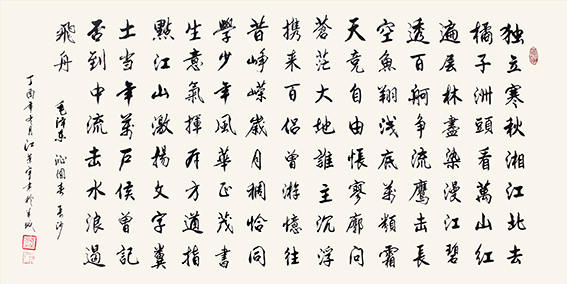 独立寒秋湘江北去
橘子洲頭看萬山红
遍层林盡染漫江碧
透百舸争流鹰击長
空魚翔浅底萬類霜
天竞自由悵寥廓问
蒼茫大地誰主沉浮
携来百侣曾游憶往
昔峥嵘歲月稠恰同
學少年風華正茂書
生意氣揮斥方遒指
點江山激揚文字糞
土当年萬户侯曾記
否到中流击水浪遏
飛舟
毛泽东 沁園春 長沙
丁酉年